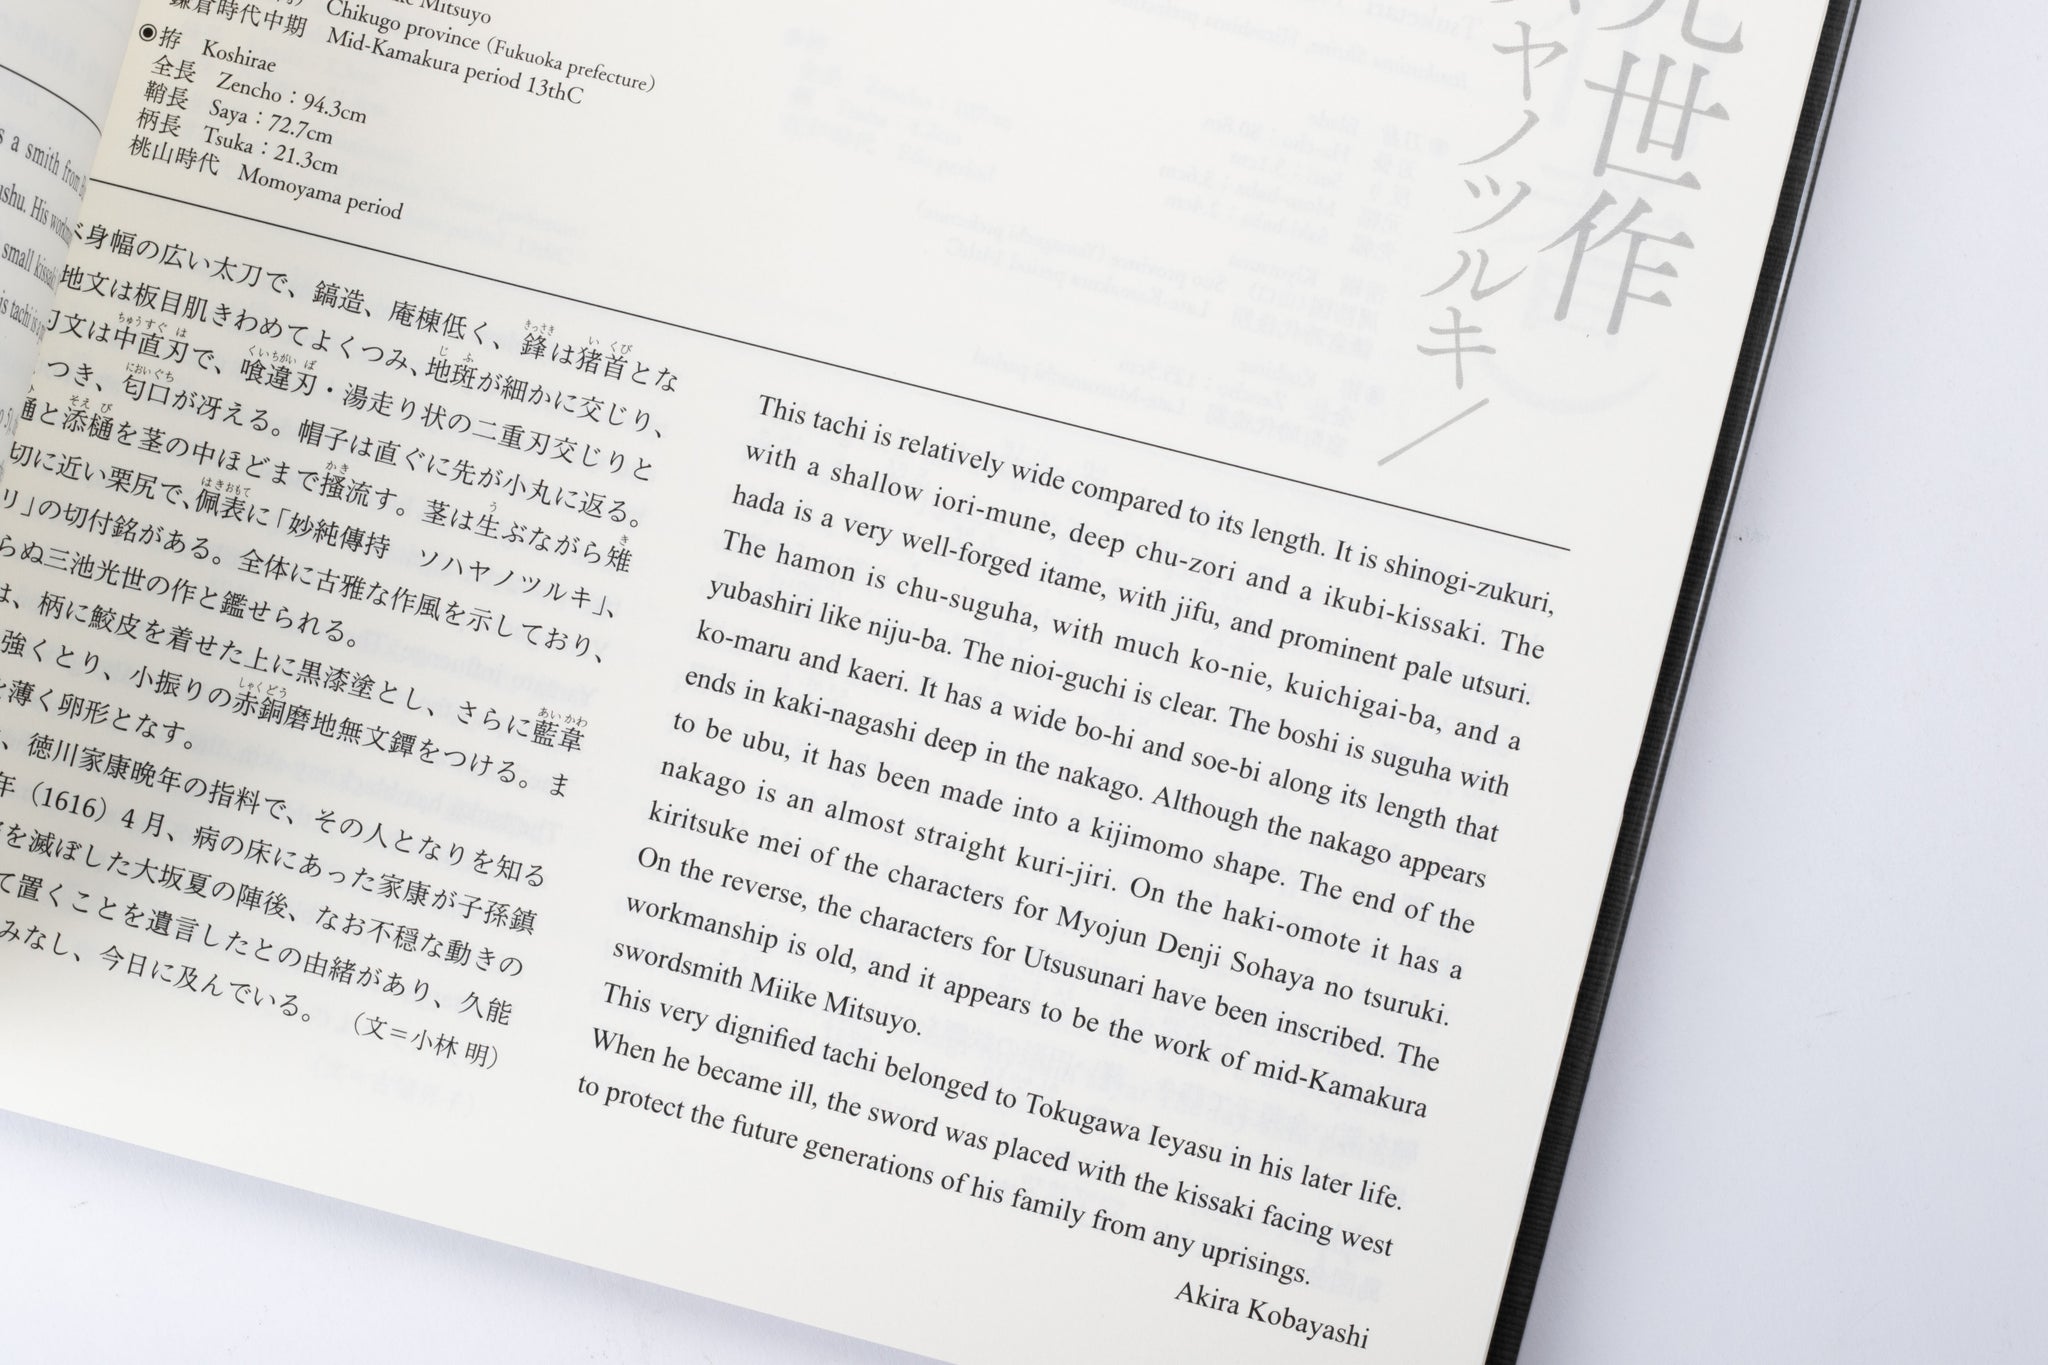 Mitsuyo
Chikugo province (Fukuoka prefecture)
鎌倉時代中期 Mid-Kamakura period 13thC
◉拵 Koshirae
全長 Zencho：94.3cm
鞘長 Saya：72.7cm
柄長 Tsuka：21.3cm
桃山時代 Momoyama period
世作
ヤノツルキ／
身幅の広い太刀で、鎬造、庵棟低く、鋒は猪首とな
地文は板目肌きわめてよくつみ、地斑が細かに交じり、
文は中直刃で、喰違刃・湯走り状の二重刃交じりと
つき、匂口が冴える。帽子は直ぐに先が小丸に返る。
樋と添樋を茎の中ほどまで搔流す。茎は生ぶながら雉
切に近い栗尻で、佩表に「妙純傳持 ソハヤノツルキ」、
リ」の切付銘がある。全体に古雅な作風を示しており、
らぬ三池光世の作と鑑せられる。
、柄に鮫皮を着せた上に黒漆塗とし、さらに藍韋
強くとり、小振りの赤銅磨地無文鐔をつける。ま
薄く卵形となす。
、徳川家康晩年の指料で、その人となりを知る
年（1616）4月、病の床にあった家康が子孫鎮
を滅ぼした大坂夏の陣後、なお不穏な動きの
て置くことを遺言したとの由緒があり、久能
みなし、今日に及んでいる。 （文＝小林 明）
This tachi is relatively wide compared to its length. It is shinogi-zukuri,
with a shallow iori-mune, deep chu-zori and a ikubi-kissaki. The
hada is a very well-forged itame, with jifu, and prominent pale utsuri.
The hamon is chu-suguha, with much ko-nie, kuichigai-ba, and a
yubashiri like niju-ba. The nioi-guchi is clear. The boshi is suguha with
ko-maru and kaeri. It has a wide bo-hi and soe-bi along its length that
ends in kaki-nagashi deep in the nakago. Although the nakago appears
to be ubu, it has been made into a kijimomo shape. The end of the
nakago is an almost straight kuri-jiri. On the haki-omote it has a
kiritsuke mei of the characters for Myojun Denji Sohaya no tsuruki.
On the reverse, the characters for Utsusunari have been inscribed. The
workmanship is old, and it appears to be the work of mid-Kamakura
swordsmith Miike Mitsuyo.
This very dignified tachi belonged to Tokugawa Ieyasu in his later life.
When he became ill, the sword was placed with the kissaki facing west
to protect the future generations of his family from any uprisings.
Akira Kobayashi
a smith from
His
small
tachi is